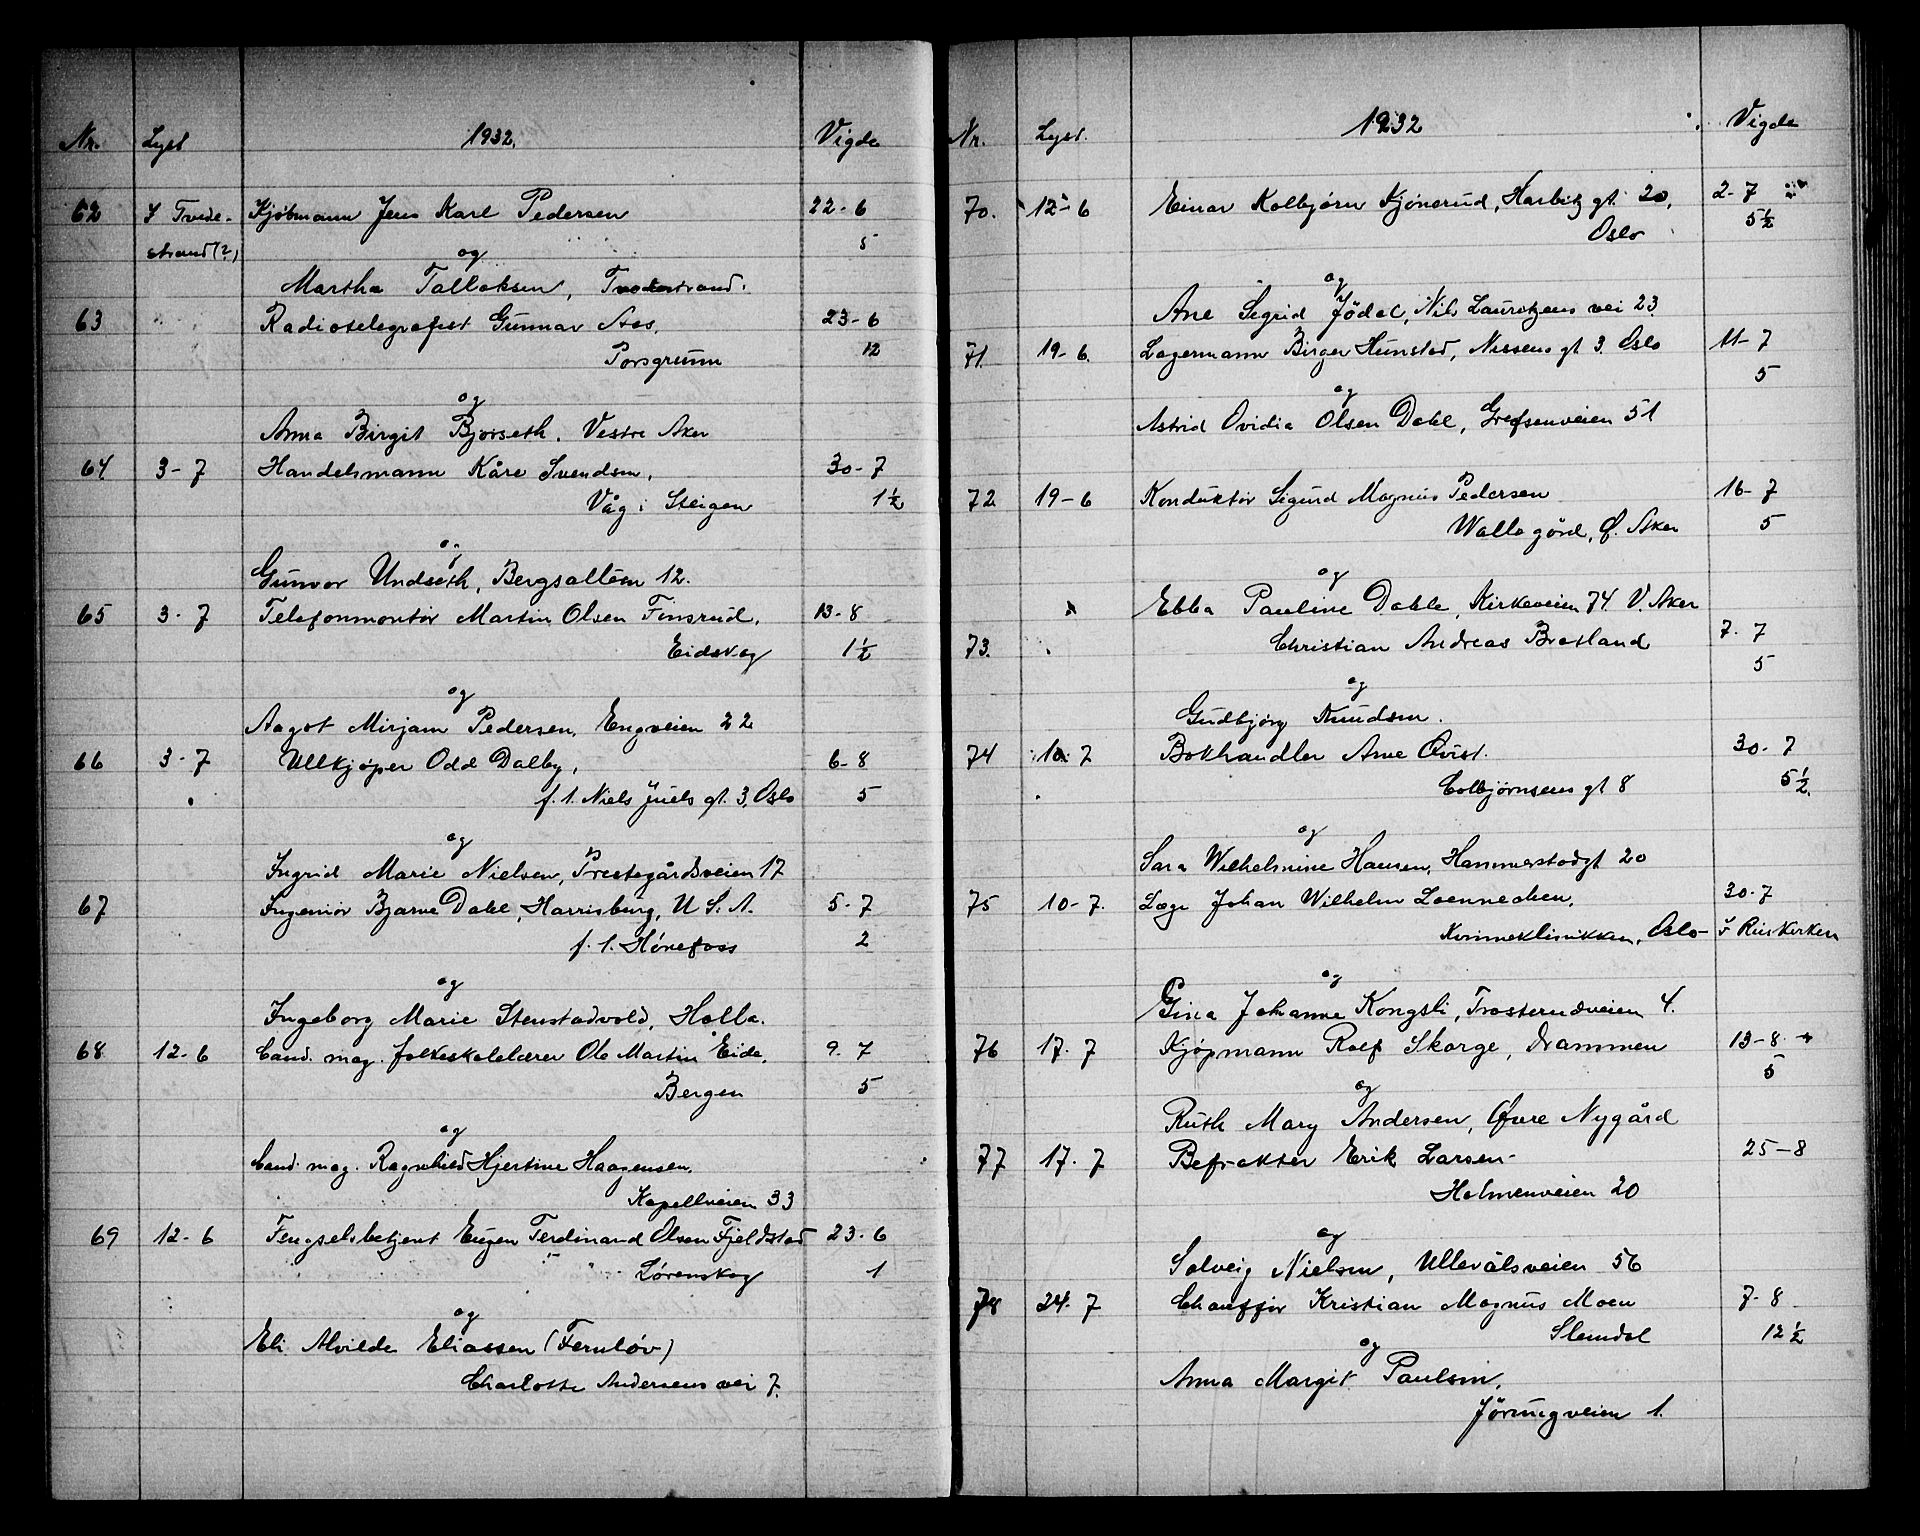 Nr. Lyst 1932. Vigde
62 I Tvede- Kjøbmann Jens Karl Pedersen 22-6
strand(?) og 5
Martha Tallaksen, Tvedestrand.
63 Radiotelegrafist Gunnar Aas, 23-6
Porsgrunn 12
og
Anna Birgit Bjørseth. Vestre Aker
64 3-7 Handelsmann Kåre Svendsen, 30-7
Våg i Steigen 1½
og
Gunvor Undseth, Bergsalleen 12.
65 3-7 Telefonmontør Martin Olsen Finsrud, 13-8
Eidskog 1½
og
Aagot Mirjam Pedersen, Engveien 22
66 3-7 Ullkjøper Odd Dalby, 6-8
f. t. Niels Juels gt. 3, Oslo 5
og
Ingrid Marie Nielsen, Prestegårdsveien 17
67 Ingeniør Bjarne Dahl, Harrisburg, U.S.A. 5-7
f. t. Hönefoss 2
og
Ingeborg Marie Stenstadvold, Holla.
68 12-6 Cand. mag. folkeskolelærer Ole Martin Eide, 9-7
Bergen 5
og
Cand. mag. Ragnhild Hjertine Haagensen,
Kapellveien 33
69 12-6 Fengselsbetjent Eugen Ferdinand Olsen Fjeldstad 23-6
Lørenskog 1
og
Eli Alvilde Eliassen (Fernløv)
Charlotte Andersens vei 7.
Nr. Lyst. 1932 Vigde
70. 12-6 Einar Kolbjørn Kjönerud, Harbitz gt. 20, 2-7
Oslo 5½
og
Ane Sigrid Jödal, Nils Lauritzens vei 23
71. 19-6. Lagermann Birger Hunstad, Nissens gt 3. Oslo 11-7
og 5
Astrid Ovidia Olsen Dahl, Grefsenveien 51
72 19-6 Konduktör Sigurd Magnus Pedersen 16-7
Walle gård, Ø. Aker 5
og
Ebba Pauline Dahle, Kirkeveien 74 V. Aker
73. Christian Andreas Bratland 7-7
5
og
Gudbjørg Knudsen.
74 10-7 Bokhandler Arne Qvist. 30-7
Colbjørnsens gt 8 5½.
og
Sara Wilhelmine Hansen, Hammerstadgt 20
75 10-7. Læge Johan Wilhelm Loennechen, 30-7
Kvinneklinikken, Oslo- i Riis kirken
og
Gina Johanne Kongsli, Trosterudveien 4.
76 17-7 Kjøpmann Rolf Skarge, Drammen 13-8
og 5
Ruth Mary Andersen, Øvre Nygård
77 17-7 Befrakter Erik Larsen- 25-8
Holmenveien 20
og
Solveig Nielsen, Ullevålsveien 56
78 24-7 Chauffør Kristian Magnus Moen 7-8
Slemdal 12½
og
Anna Margit Paulsen,
Jörungveien 1.